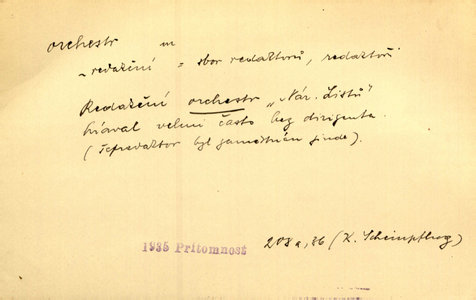 orchestr m
~ redakční = sbor redaktorů, redaktoři
Redakční orchestr „Nár. Listů"
hrával velmi často bez dirigenta.
(Šéfredaktor byl zaměstnán jinde).
1935 Přítomnost 208a, 86 (K. Scheinpflug)